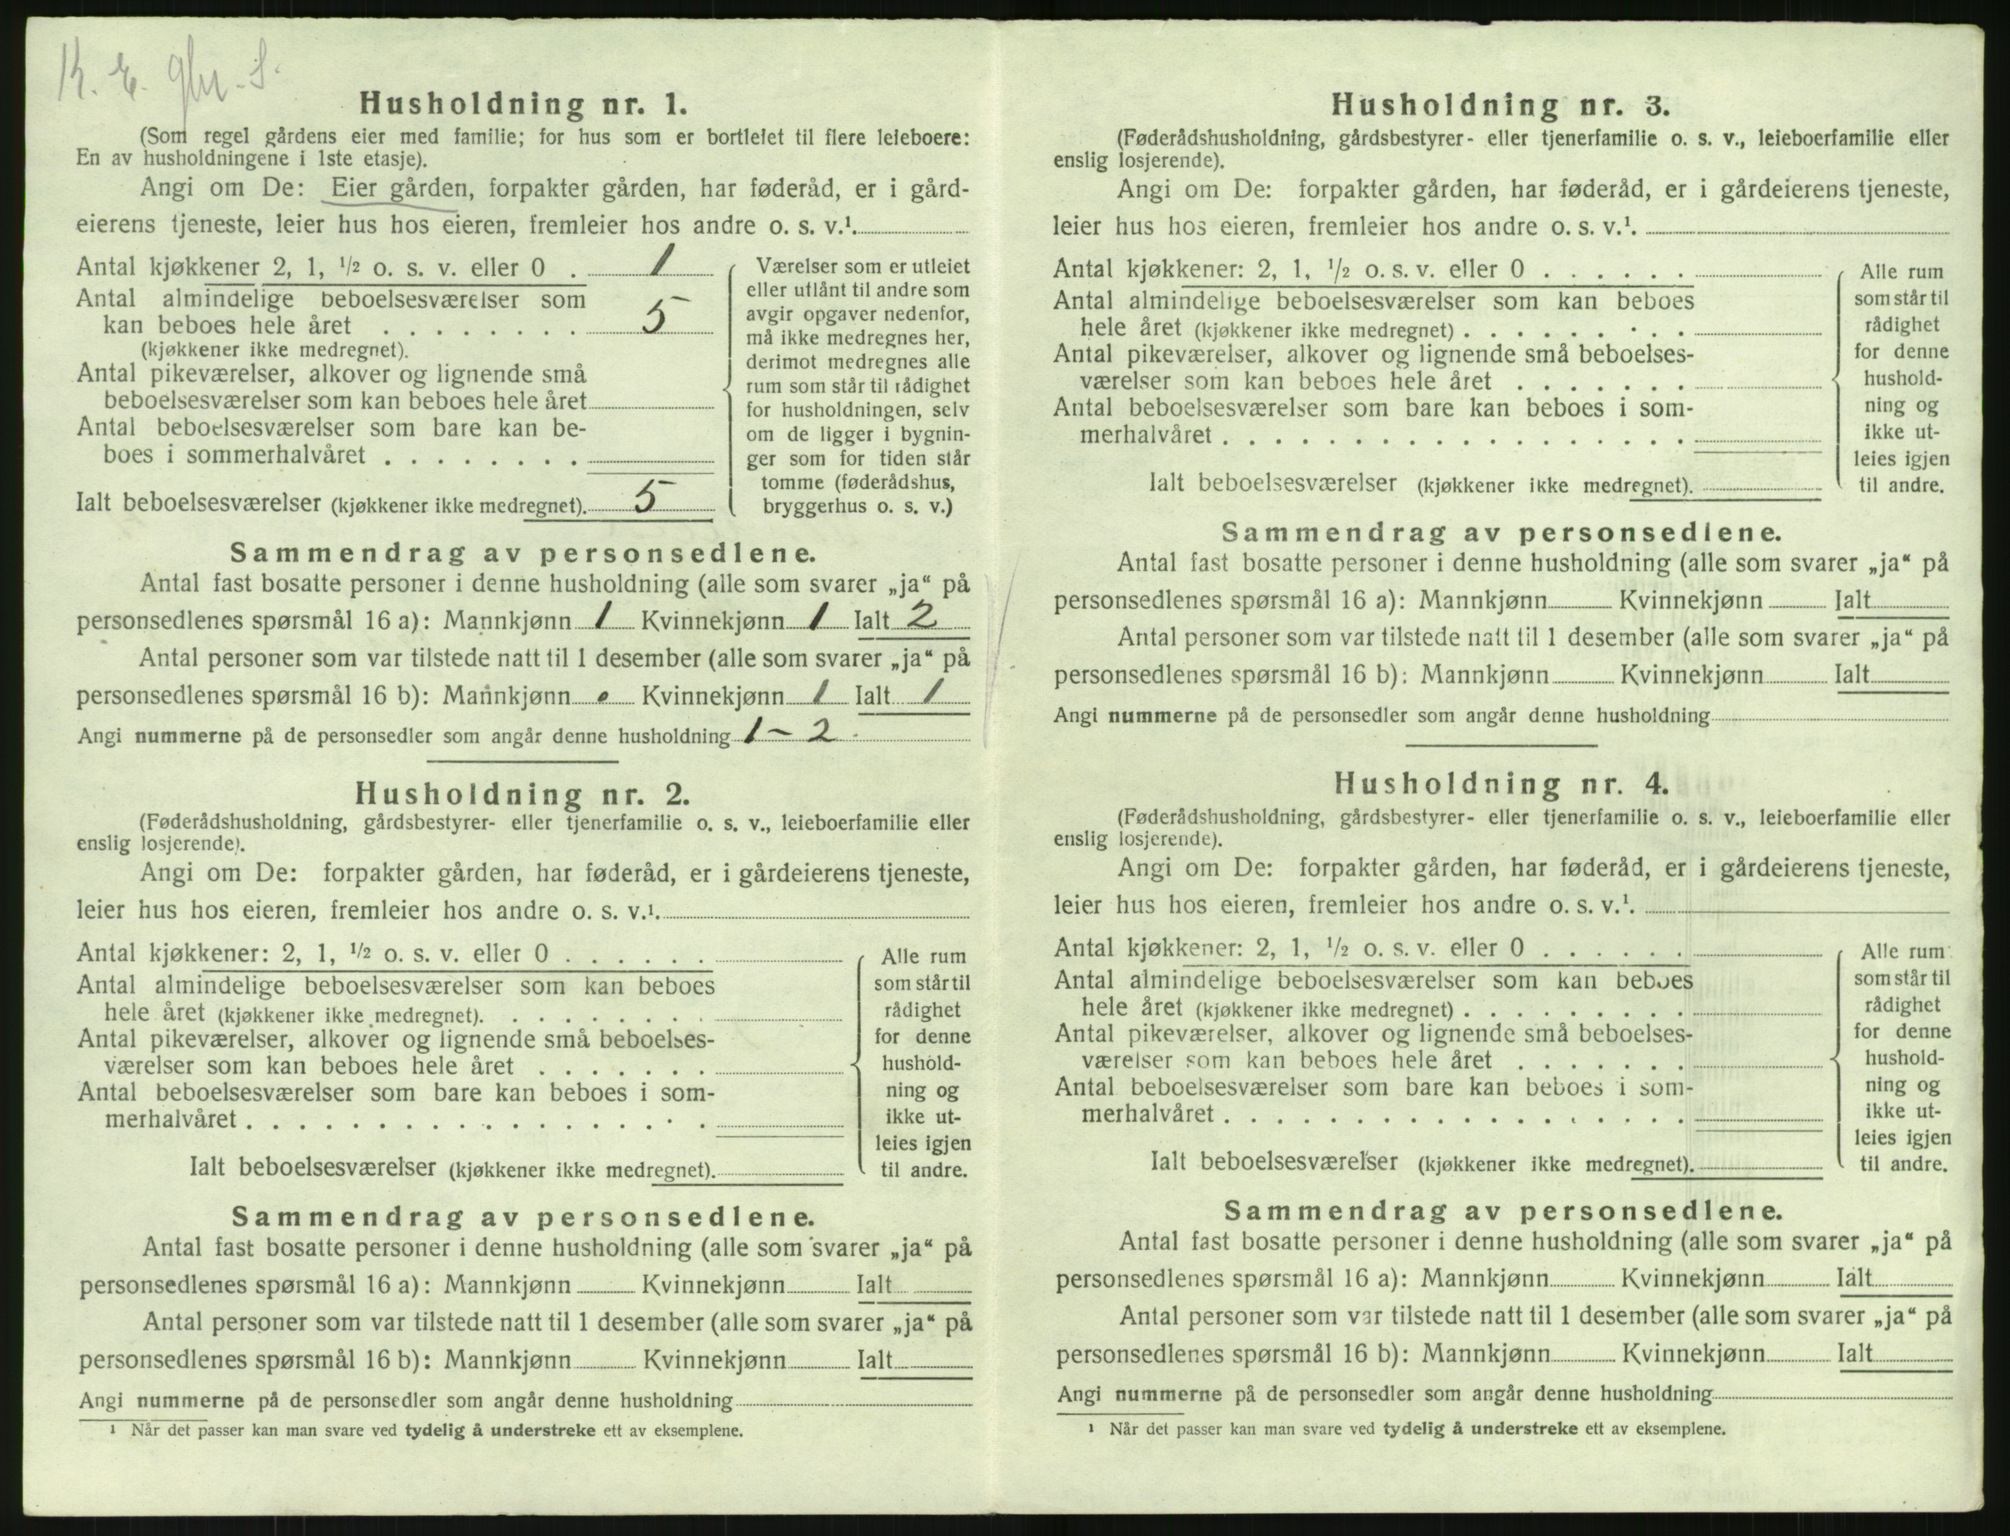 K. E. glm. S.
Husholdning nr. 1.
(Som regel gårdens eier med familie; for hus som er bortleiet til flere leieboere:
En av husholdningene i 1ste etasje).
Angi om De: Eier gården, forpakter gården, har føderåd, er i gård-
eierens tjeneste, leier hus hos eieren, fremleier hos andre o. s. v.¹.
Antal kjøkkener 2, 1, ½ o. s. v. eller 0 . 1
Antal almindelige beboelsesværelser som
kan beboes hele året . . . . . . . . 5
(kjøkkener ikke medregnet).
Antal pikeværelser, alkover og lignende små
beboelsesværelser som kan beboes hele året
Antal beboelsesværelser som bare kan be-
boes i sommerhalvåret . . . . . . . .
Ialt beboelsesværelser (kjøkkener ikke medregnet). 5
Værelser som er utleiet
eller utlånt til andre som
avgir opgaver nedenfor,
må ikke medregnes her,
derimot medregnes alle
rum som står til rådighet
for husholdningen, selv
om de ligger i bygnin-
ger som for tiden står
tomme (føderådshus,
bryggerhus o. s. v.)
Sammendrag av personsedlene.
Antal fast bosatte personer i denne husholdning (alle som svarer „ja“ på
personsedlenes spørsmål 16 a): Mannkjønn 1 Kvinnekjønn 1 Ialt 2
Antal personer som var tilstede natt til 1 desember (alle som svarer „ja“ på
personsedlenes spørsmål 16 b): Mannkjønn • Kvinnekjønn 1 Ialt 1
Angi nummerne på de personsedler som angår denne husholdning 1 - 2
Husholdning nr. 2.
(Føderådshusholdning, gårdsbestyrer- eller tjenerfamilie o. s. v., leieboerfamilie eller
enslig losjerende).
Angi om De: forpakter gården, har føderåd, er i gårdeierens tjeneste,
leier hus hos eieren, fremleier hos andre o. s. v.¹.
Antal kjøkkener: 2, 1, ½ o. s. v. eller 0 . . . . . .
Antal almindelige beboelsesværelser som kan beboes
hele året (kjøkkener ikke medregnet). . . . . . . . .
Antal pikeværelser, alkover og lignende små beboelses-
værelser som kan beboes hele året . . . . . . .
Antal beboelsesværelser som bare kan beboes i som-
merhalvåret . . . . . . . . . . . . . . . . . .
Ialt beboelsesværelser (kjøkkener ikke medregnet).
Alle rum
som står til
rådighet
for denne
hushold-
ning og
ikke ut-
leies igjen
til andre.
Sammendrag av personsedlene.
Antal fast bosatte personer i denne husholdning (alle som svarer „ja“ på
personsedlenes spørsmål 16 a): Mannkjønn Kvinnekjønn Ialt
Antal personer som var tilstede natt til 1 desember (alle som svarer „ja“ på
personsedlenes spørsmål 16 b): Mannkjønn Kvinnekjønn Ialt
Angi nummerne på de personsedler som angår denne husholdning
¹ Når det passer kan man svare ved tydelig å understreke ett av eksemplene.
Husholdning nr. 3.
(Føderådshusholdning, gårdsbestyrer- eller tjenerfamilie o. s. v., leieboerfamilie eller
enslig losjerende).
Angi om De: forpakter gården, har føderåd, er i gårdeierens tjeneste,
leier hus hos eieren, fremleier hos andre o. s. v.¹.
Antal kjøkkener: 2, 1, ½ o. s. v. eller 0 . . . . . .
Antal almindelige beboelsesværelser som kan beboes
hele året (kjøkkener ikke medregnet) . . . . . . . . .
Antal pikeværelser, alkover og lignende små beboelses-
værelser som kan beboes hele året . . . . . . .
Antal beboelsesværelser som bare kan beboes i som-
merhalvåret . . . . . . . . . . . . . . . . . .
Ialt beboelsesværelser (kjøkkener ikke medregnet).
Alle rum
som står til
rådighet
for denne
hushold-
ning og
ikke ut-
leies igjen
til andre.
Sammendrag av personsedlene.
Antal fast bosatte personer i denne husholdning (alle som svarer „ja“ på
personsedlenes spørsmål 16 a): Mannkjønn Kvinnekjønn Ialt
Antal personer som var tilstede natt til 1 desember (alle som svarer „ja“ på
personsedlenes spørsmål 16 b): Mannkjønn Kvinnekjønn Ialt
Angi nummerne på de personsedler som angår denne husholdning
Husholdning nr. 4.
(Føderådshusholdning, gårdsbestyrer- eller tjenerfamilie o. s. v., leieboerfamilie eller
enslig losjerende).
Angi om De: forpakter gården, har føderåd, er i gårdeierens tjeneste,
leier hus hos eieren, fremleier hos andre o. s. v.¹.
Antal kjøkkener: 2, 1, ½ o. s. v. eller 0 . . . . . .
Antal almindelige beboelsesværelser som kan beboes
hele året (kjøkkener ikke medregnet) . . . . . . . . .
Antal pikeværelser, alkover og lignende små beboelses-
værelser som kan beboes hele året . . . . . . .
Antal beboelsesværelser som bare kan beboes i som-
merhalvåret . . . . . . . . . . . . . . . . . .
Ialt beboelsesværelser (kjøkkener ikke medregnet).
Alle rum
som står til
rådighet
for denne
hushold-
ning og
ikke ut-
leies igjen
til andre.
Sammendrag av personsedlene.
Antal fast bosatte personer i denne husholdning (alle som svarer „ja“ på
personsedlenes spørsmål 16 a): Mannkjønn Kvinnekjønn Ialt
Antal personer som var tilstede natt til 1 desember (alle som svarer „ja“ på
personsedlenes spørsmål 16 b): Mannkjønn Kvinnekjønn Ialt
Angi nummerne på de personsedler som angår denne husholdning
¹ Når det passer kan man svare ved tydelig å understreke ett av eksemplene.